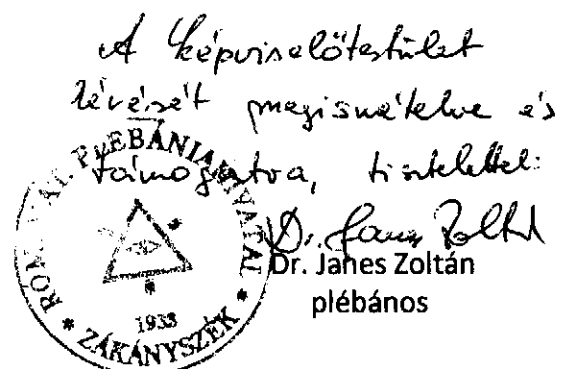 A képviselőtestület
kérését megismételve és
támogatva, tisztelettel:
Dr. Janes Zoltán
Dr. Janes Zoltán
plébános
RÓM. KAT. PLEBÁNIAHIVATAL
* ZÁKÁNYSZÉK *
1933